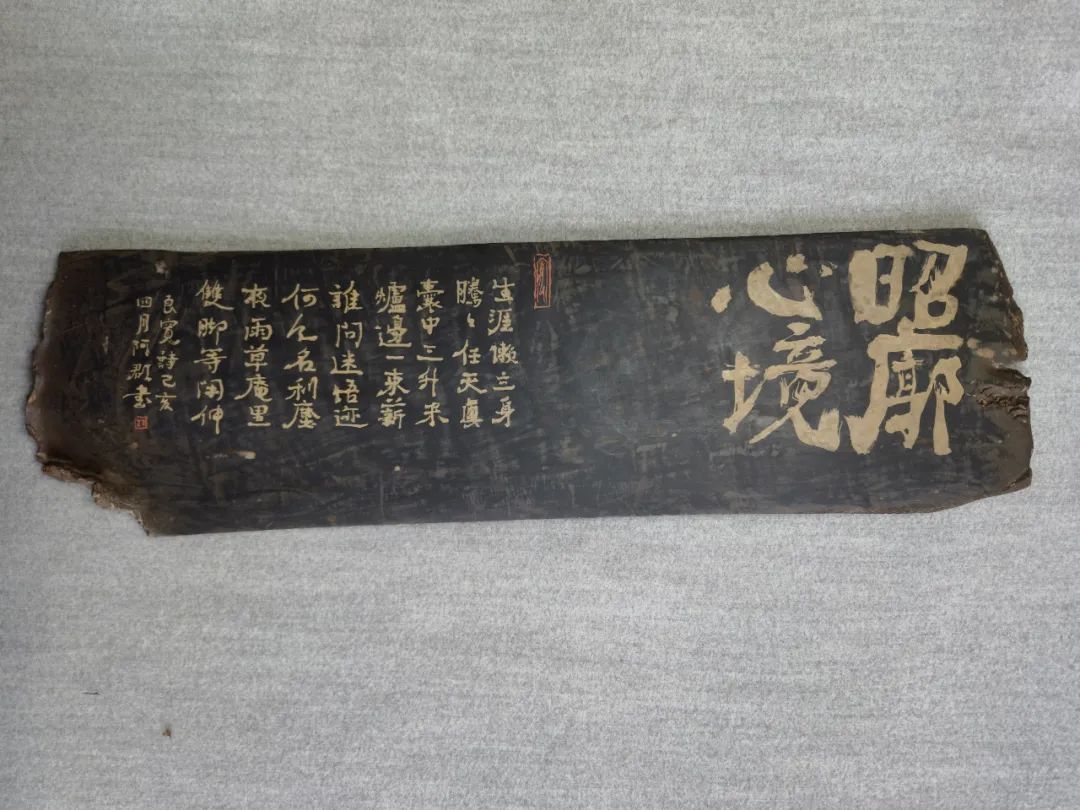 昭廓
心境
生涯懒立身
騰々任天真
囊中三升米
爐邊一束薪
誰問迷悟迹
何知名利塵
夜雨草庵里
雙脚等闲伸
良寬詩己亥
四月阿群書